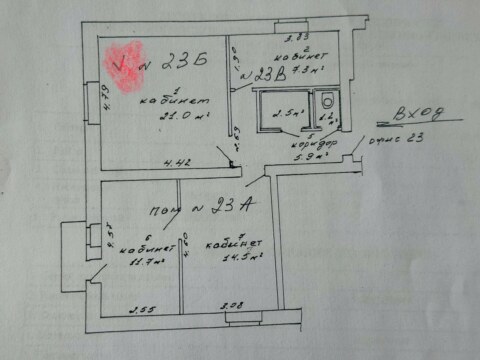 3.83
V № 23Б
2
кабинет
7.3 м²
1.90
№ 23В
4.79
1
кабинет
21.0 м²
2.5 м²
1.2 м²
Вход
офис 23
2.69
5
коридор
5.9 м²
4.42
пом № 23А
6
кабинет
11.7 м²
4.60
7
кабинет
14.5 м²
2.55
3.08